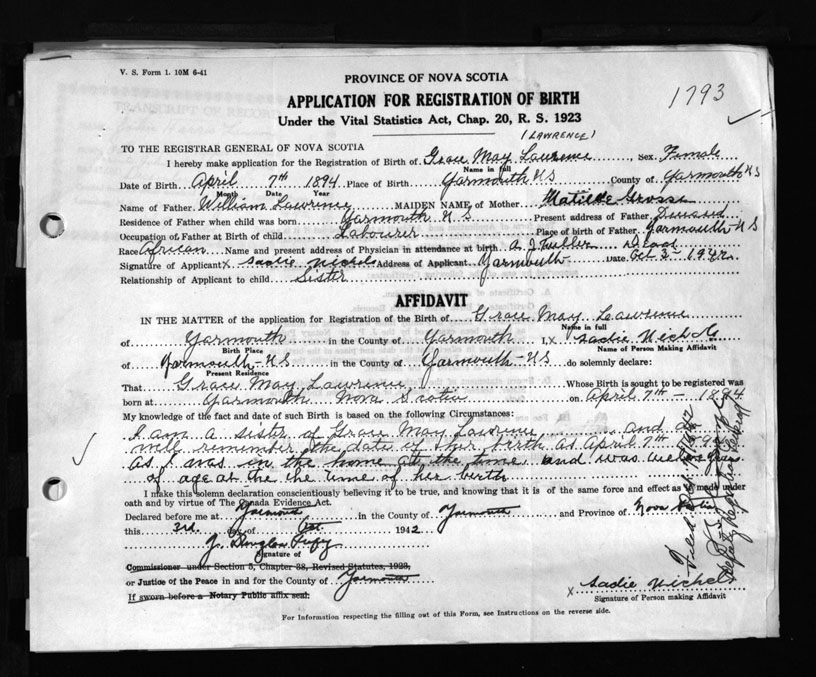 V. S. Form 1. 10M 6-41
PROVINCE OF NOVA SCOTIA
1793
APPLICATION FOR REGISTRATION OF BIRTH
Under the Vital Statistics Act, Chap. 20, R. S. 1923
(LAWRENCE)
TO THE REGISTRAR GENERAL OF NOVA SCOTIA
I hereby make application for the Registration of Birth of Grace May Lawrence Sex Female
Name in full
Date of Birth April 7th 1894 Place of Birth Yarmouth NS County of Yarmouth NS
Month Date Year
Name of Father William Lawrence MAIDEN NAME of Mother Matilde Grosse
Residence of Father when child was born Yarmouth N.S Present address of Father Deceased
Occupation of Father at Birth of child Labourer Place of birth of Father Yarmouth NS
Race African Name and present address of Physician in attendance at birth A. J. Fuller Dead
Signature of Applicant X Sadie Nichols Address of Applicant Yarmouth Date Oct 3- 1942
Relationship of Applicant to child Sister
AFFIDAVIT
IN THE MATTER of the application for Registration of the Birth of Grace May Lawrence
Name in full
of Yarmouth in the County of Yarmouth I, X Sadie Nichols
Birth Place Name of Person Making Affidavit
of Yarmouth-NS in the County of Yarmouth-NS do solemnly declare:
Present Residence
That Grace May Lawrence Whose Birth is sought to be registered was
born at Yarmouth Nova Scotia on April 7th - 1894
My knowledge of the fact and date of such Birth is based on the following Circumstances:
I am a sister of Grace May Lawrence and do
well remember the date of her birth as April 7th 1894
As I was in the home at the time and was years
of age at the the time of her birth
I make this solemn declaration conscientiously believing it to be true, and knowing that it is of the same force and effect as if made under
oath and by virtue of The Canada Evidence Act.
Declared before me at Yarmouth in the County of Yarmouth and Province of Nova Scotia
this 3rd. day of Oct. 1942
J. Douglas
Signature of
Commissioner under Section 5, Chapter 38, Revised Statutes, 1923,
or Justice of the Peace in and for the County of Yarmouth
If sworn before a Notary Public affix seal.
X Sadie Nichols
Signature of Person making Affidavit
For Information respecting the filling out of this Form, see Instructions on the reverse side.
Filed
Deputy Registrar General